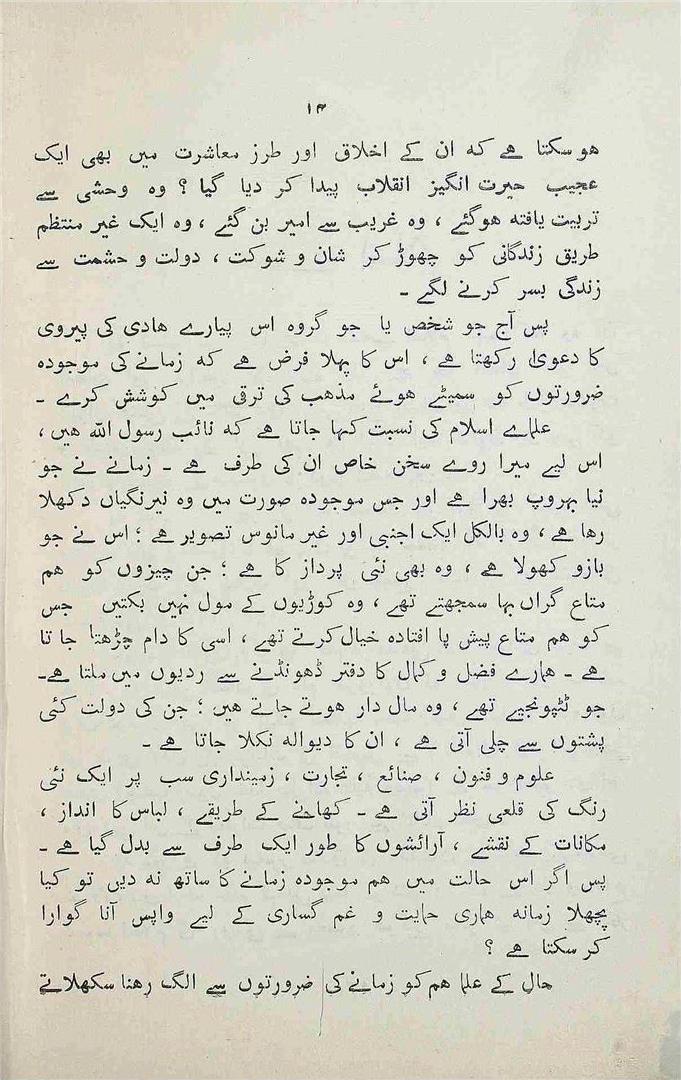 ۱۴
هو سکتا ہے که ان کے اخلاق اور طرز معاشرت میں بھی ایک
عجیب حیرت انگیز انقلاب پیدا کر دیا گیا ؟ وہ وحشی سے
تربیت یافته هوگئے ، وہ غریب سے امیر بن گئے ، وہ ایک غیر منتظم
طریق زندگانی کو چھوڑ کر شان و شوکت ، دولت و حشمت سے
زندگی بسر کرنے لگے ۔
پس آج جو شخص یا جو گروہ اس پیارے هادی کی پیروی
کا دعویٰ رکھتا ہے ، اس کا پہلا فرض ہے که زمانے کی موجودہ
ضرورتوں کو سمیٹے هوئے مذهب کی ترقی میں کوشش کرے ۔
علماے اسلام کی نسبت کہا جاتا ہے که نائب رسول الله هیں ،
اس لیے میرا روے سخن خاص ان کی طرف ہے ۔ زمانے نے جو
نیا بہروپ بھرا ہے اور جس موجودہ صورت میں وہ نیرنگیاں دکھلا
رها ہے ، وہ بالکل ایک اجنبی اور غیر مانوس تصویر ہے ؛ اس نے جو
بازو کھولا ہے ، وہ بھی نئی پرداز کا ہے ؛ جن چیزوں کو هم
متاع گراں بہا سمجھتے تھے ، وہ کوڑیوں کے مول نہیں بکتیں جس
کو هم متاع پیش پا افتادہ خیال کرتے تھے ، اسی کا دام چڑھتا جا تا
ہے ۔ همارے فضل و کمال کا دفتر ڈھونڈنے سے ردیوں میں ملتا ہے۔
جو ٹٹپونجیے تھے ، وہ مال دار هوتے جاتے هیں ؛ جن کی دولت کئی
پشتوں سے چلی آتی ہے ، ان کا دیواله نکلا جاتا ہے ۔
علوم و فنون ، صنائع ، تجارت ، زمینداری سب پر ایک نئی
رنگ کی قلعی نظر آتی ہے ۔ کھانے کے طریقے ، لباس کا انداز ،
مکانات کے نقشے ، آرائشوں کا طور ایک طرف سے بدل گیا ہے ۔
پس اگر اس حالت میں هم موجودہ زمانے کا ساتھ نه دیں تو کیا
پچھلا زمانه هماری حمایت و غم گساری کے لیے واپس آنا گوارا
کر سکتا ہے ؟
حال کے علما هم کو زمانے کی ضرورتوں سے الگ رهنا سکھلاتے